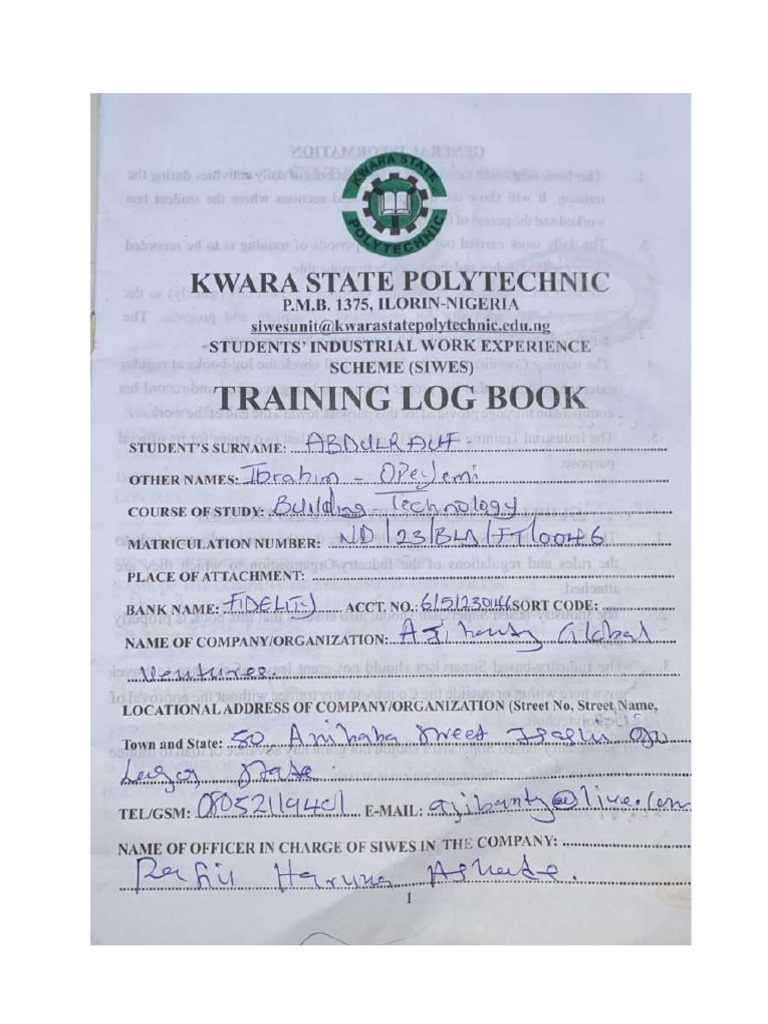 KWARA STATE
POLYTECHNIC
KWARA STATE POLYTECHNIC
P.M.B. 1375, ILORIN-NIGERIA
siwesunit@kwarastatepolytechnic.edu.ng
STUDENTS' INDUSTRIAL WORK EXPERIENCE
SCHEME (SIWES)
TRAINING LOG BOOK
STUDENT'S SURNAME: ABDULRAUF
OTHER NAMES: Ibrahim - OPeyemi
COURSE OF STUDY: Building - Technology
MATRICULATION NUMBER: ND/23/BLD/FT/0046
PLACE OF ATTACHMENT:
BANK NAME: FIDELITY ACCT. NO.: SORT CODE:
NAME OF COMPANY/ORGANIZATION: Global
Ventures.
LOCATIONAL ADDRESS OF COMPANY/ORGANIZATION (Street No, Street Name,
Town and State: 50, street
Lagos State
TEL/GSM: E-MAIL:
NAME OF OFFICER IN CHARGE OF SIWES IN THE COMPANY:
Haruna
1